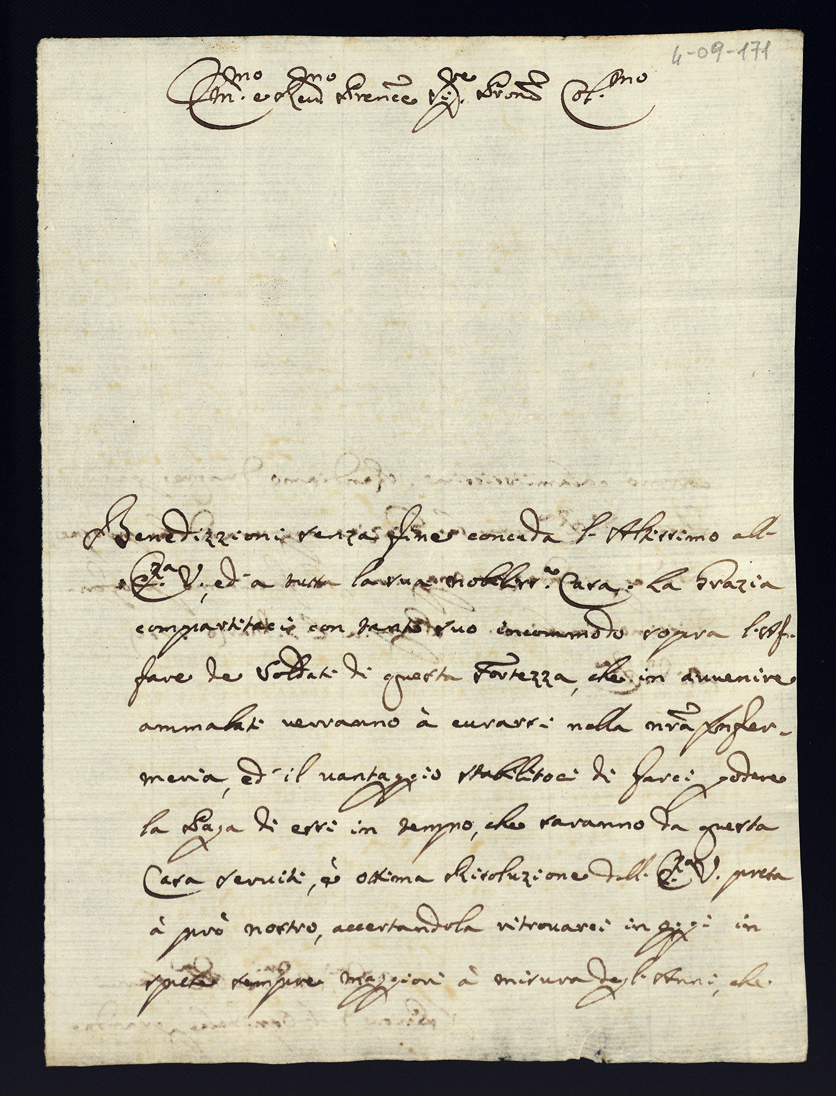 4-09-171
Em.mo e Reu.mo Prence Sig.re Pron̄e Col.mo
Benedizzioni senza fine conceda l'Altissimo all'
E.za V., ed' a tutta la sua nobiliss.a Casa: la Grazia
compartitaci con tanto suo incommodo sopra l'Af-
fare de Soldati di questa Fortezza, che in avvenire
ammalati verranno à curarsi nella nrā Infer-
meria, ed' il vantaggio stabilitoci di farci godere
la Paga di essi in tempo, che saranno da questa
Casa serviti, è ottima Risoluzione dell' E.za V. presa
à prò nostro, accertandola ritrovarci in oggi in
spese sempre maggiori à misura degl'Anni, che